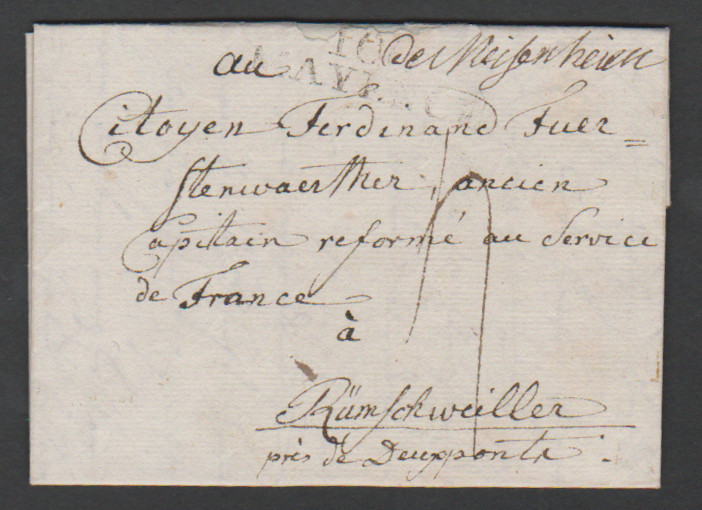 de Meisenheim
au
MAYENCE
Citoyen Ferdinand Fuer=
stenwaerther, ancien
Capitain reformé au Service
de France
à
Rümschweiller
près de Deuxponts.